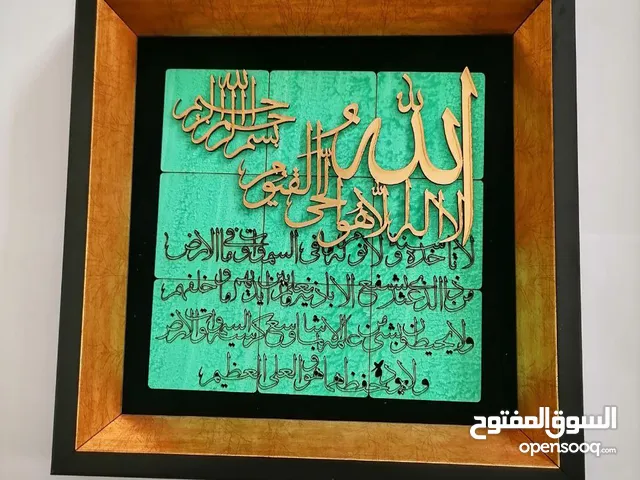 بسم الله الرحمن الرحيم
الله
لا اله الا هو الحي القيوم
لا تاخذه سنة ولا نوم له ما في السموات وما في الارض
من ذا الذي يشفع عنده الا باذنه يعلم ما بين ايديهم وما خلفهم
ولا يحيطون بشيء من علمه الا بما شاء وسع كرسيه السموات والارض
ولا يوده حفظهما وهو العلي العظيم
السوق المفتوح
opensooq.com